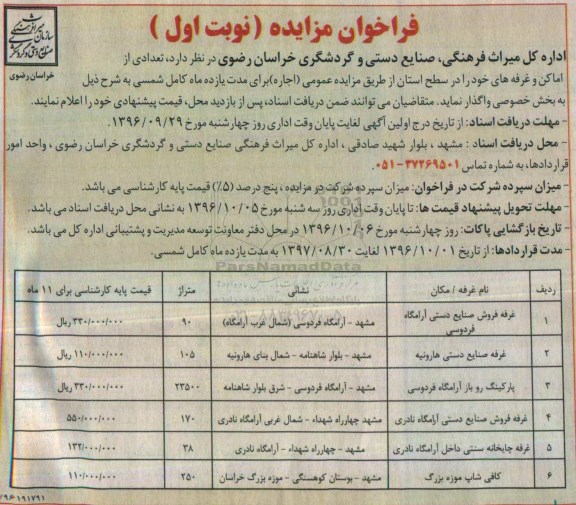 فراخوان مزایده (نوبت اول)
سازمان میراث فرهنگی
صنایع دستی و گردشگری
خراسان رضوی
اداره کل میراث فرهنگی، صنایع دستی و گردشگری خراسان رضوی در نظر دارد، تعدادی از
اماکن و غرفه های خود را در سطح استان از طریق مزایده عمومی (اجاره) برای مدت یازده ماه کامل شمسی به شرح ذیل
به بخش خصوصی واگذار نماید. متقاضیان می توانند ضمن دریافت اسناد، پس از بازدید محل، قیمت پیشنهادی خود را اعلام نمایند.
- مهلت دریافت اسناد: از تاریخ درج اولین آگهی لغایت پایان وقت اداری روز چهارشنبه مورخ ۱۳۹۶/۰۹/۲۹.
- محل دریافت اسناد: مشهد، بلوار شهید صادقی، اداره کل میراث فرهنگی صنایع دستی و گردشگری خراسان رضوی، واحد امور
قراردادها، به شماره تماس ۳۷۲۶۹۵۰۱-۰۵۱.
- میزان سپرده شرکت در فراخوان: میزان سپرده شرکت در مزایده، پنج درصد (۵٪) قیمت پایه کارشناسی می باشد.
- مهلت تحویل پیشنهاد قیمت ها: تا پایان وقت اداری روز سه شنبه مورخ ۱۳۹۶/۱۰/۰۵ به نشانی محل دریافت اسناد می باشد.
- تاریخ بازگشایی پاکات: روز چهارشنبه مورخ ۱۳۹۶/۱۰/۰۶ در محل دفتر معاونت توسعه مدیریت و پشتیبانی اداره کل می باشد.
- مدت قراردادها: از تاریخ ۱۳۹۶/۱۰/۰۱ لغایت ۱۳۹۷/۰۸/۳۰ به مدت یازده ماه کامل شمسی.
ParsNamadData
ردیف نام غرفه / مکان نشانی متراژ قیمت پایه کارشناسی برای ۱۱ ماه
۱ غرفه فروش صنایع دستی آرامگاه فردوسی مشهد - آرامگاه فردوسی (شمال غرب آرامگاه) ۹۰ ۳۳۰/۰۰۰/۰۰۰ ریال
۲ غرفه صنایع دستی هارونیه مشهد - بلوار شاهنامه - شمال بنای هارونیه ۱۰۵ ۱۱۰/۰۰۰/۰۰۰ ریال
۳ پارکینگ رو باز آرامگاه فردوسی مشهد - آرامگاه فردوسی - شرق بلوار شاهنامه ۲۳۵۰۰ ۳۳۰/۰۰۰/۰۰۰ ریال
۴ غرفه فروش صنایع دستی آرامگاه نادری مشهد چهارراه شهداء - شمال غربی آرامگاه نادری ۱۷۰ ۵۵۰/۰۰۰/۰۰۰
۵ غرفه چایخانه سنتی داخل آرامگاه نادری مشهد - چهارراه شهداء - آرامگاه نادری ۳۸ ۱۳۲/۰۰۰/۰۰۰
۶ کافی شاپ موزه بزرگ مشهد - بوستان کوهسنگی - موزه بزرگ خراسان ۲۵۰ ۱۱۰/۰۰۰/۰۰۰